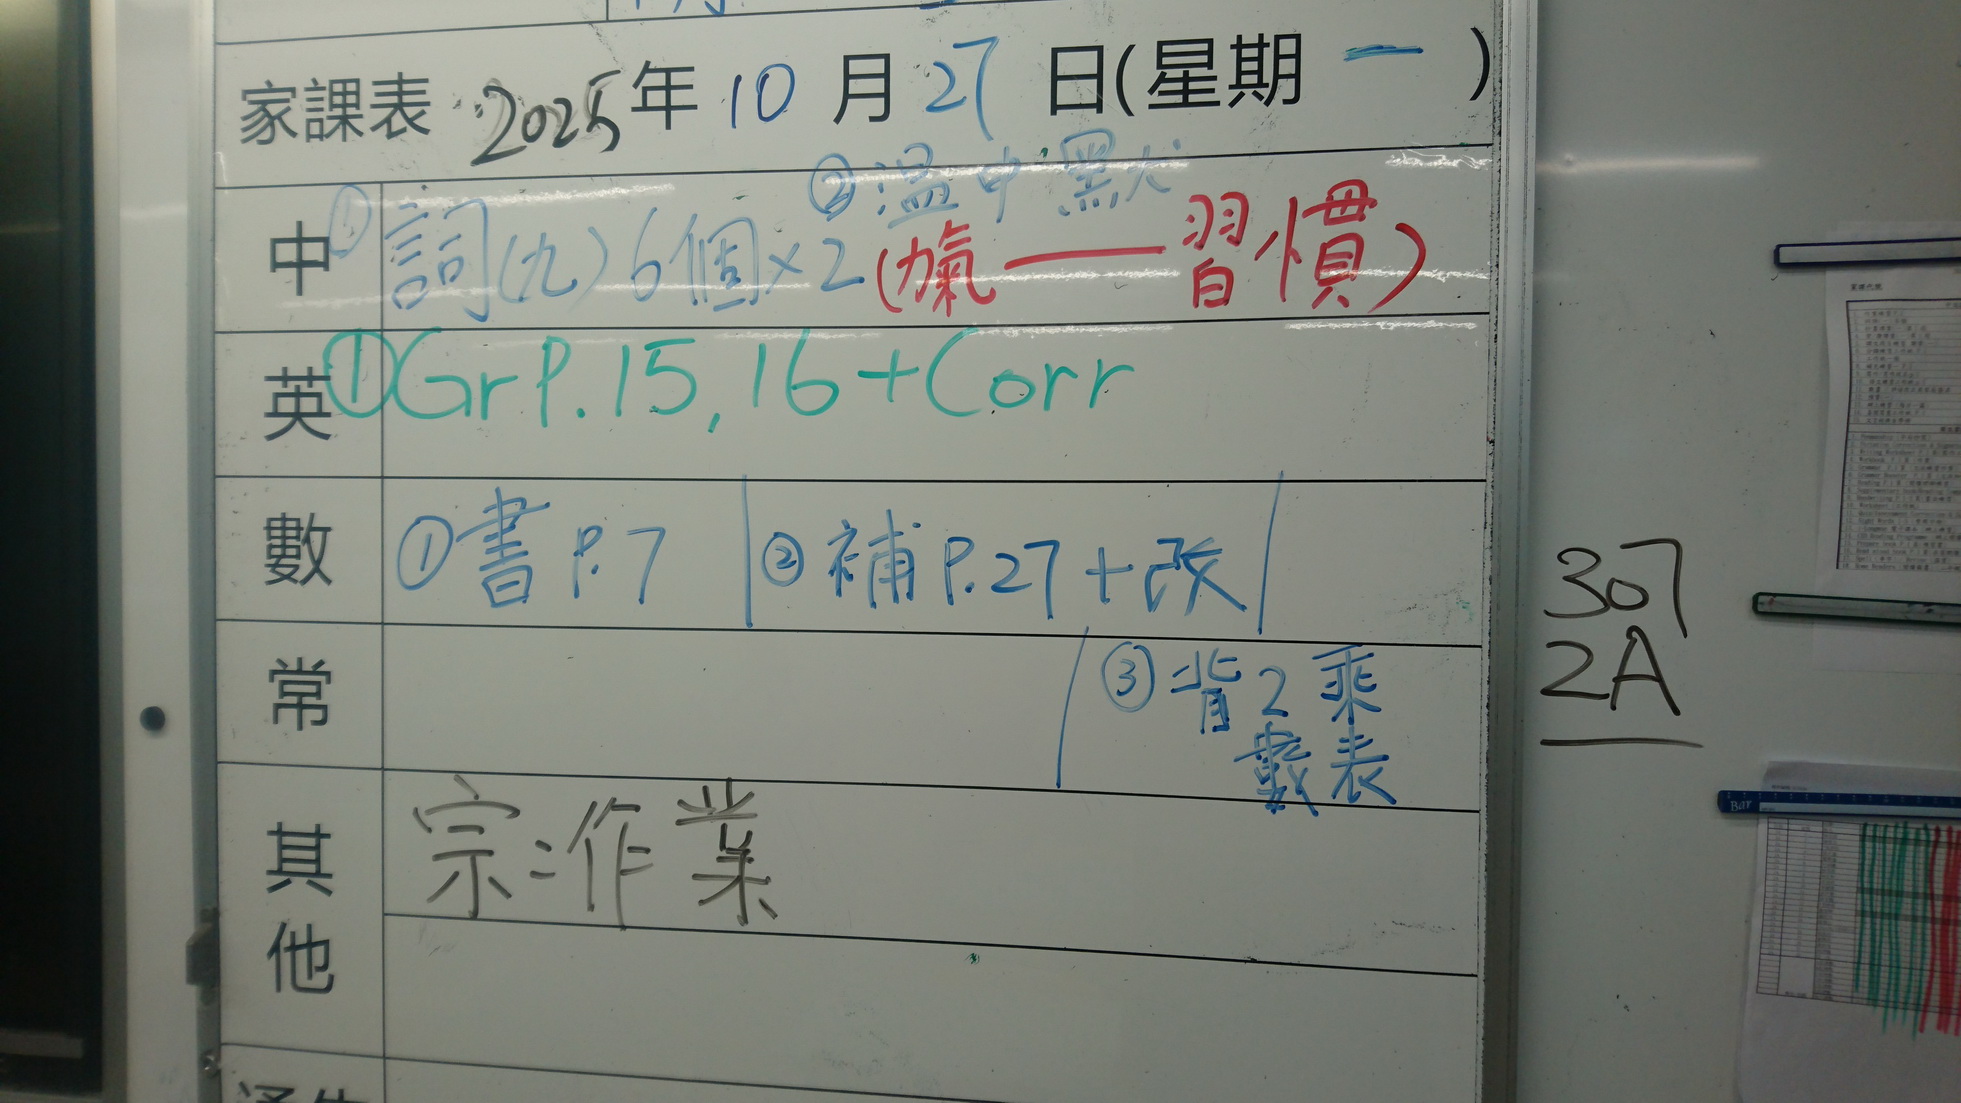 家課表 2025年 10 月 27 日(星期 一 )
中 ① 詞(九)6個×2 (力氣——習慣) ② 溫中默
英 ① Gr P.15, 16 + Corr
數 ① 書 P.7 ② 補 P.27 + 改
常 ③ 背2乘
數表
其他 宗:作業
307
2A
Bar